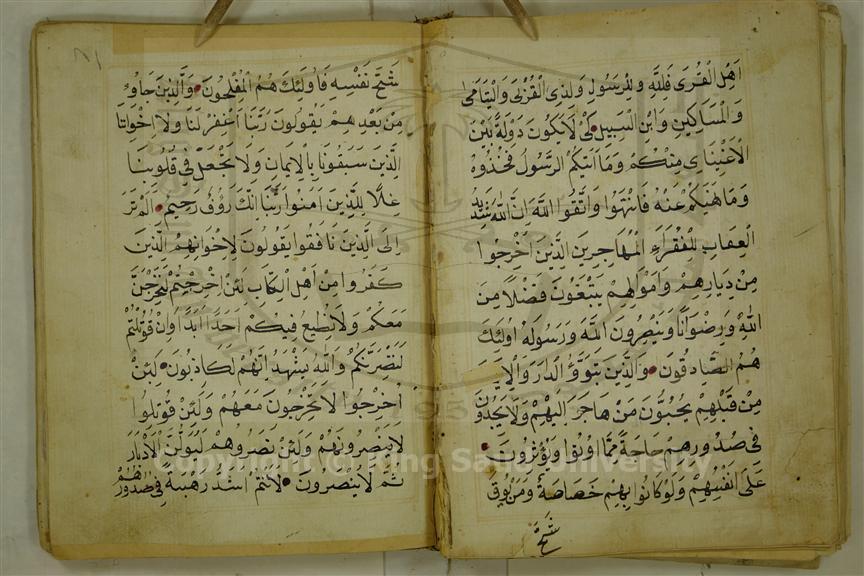 اهل القرى فلله وللرسول ولذى القربى واليتامى
والمساكين وابن السبيل كى لا يكون دولة بين
الاغنياى منكم وما اتيكم الرسول فخذوه
وما نهيكم عنه فانتهوا واتقوا الله ان الله شديد
العقاب للفقراء المهاجرين الذين اخرجوا
من ديارهم واموالهم يبتغون فضلا من
الله ورضوانا وينصرون الله ورسوله اولئك
هم الصادقون والذين تبوؤ الدار والايـ
من قبلهم يحبون من هاجر اليهم ولا يجدون
فى صدورهم حاجة مما اوتوا ويؤثرون
على انفسهم ولو كانوا بهم خصاصة ومن يوق
شح
٨١
شح نفسه فاولئك هم المفلحون والذين جاوء
من بعدهم يقولون ربنا اغفر لنا ولاخواننا
الذين سبقونا بالايمان ولا تجعل فى قلوبنا
غلا للذين امنوا ربنا انك رؤوف رحيم الم تر
الى الذين نافقوا يقولون لاخوانهم الذين
كفروا من اهل الكتاب لئن اخرجتم لنخرجن
معكم ولا نطيع فيكم احدا ابدا وان قوتلتم
لننصرنكم والله يشهد انهم لكاذبون لئن
اخرجوا لا يخرجون معهم ولئن قوتلوا
لا ينصرونهم ولئن نصروهم ليولن الادبار
ثم لا ينصرون لانتم اشد رهبة فى صدورهم
Copyright © King Saud University